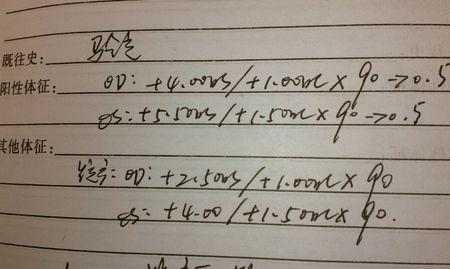 既往史:
阳性体征: OD: +4.00DS/+1.00DC×90→0.5
OS: +5.50DS/+1.50DC×90→0.5
其他体征:
OD: +2.50DS/+1.00DC×90
OS: +4.00/+1.50DC×90.